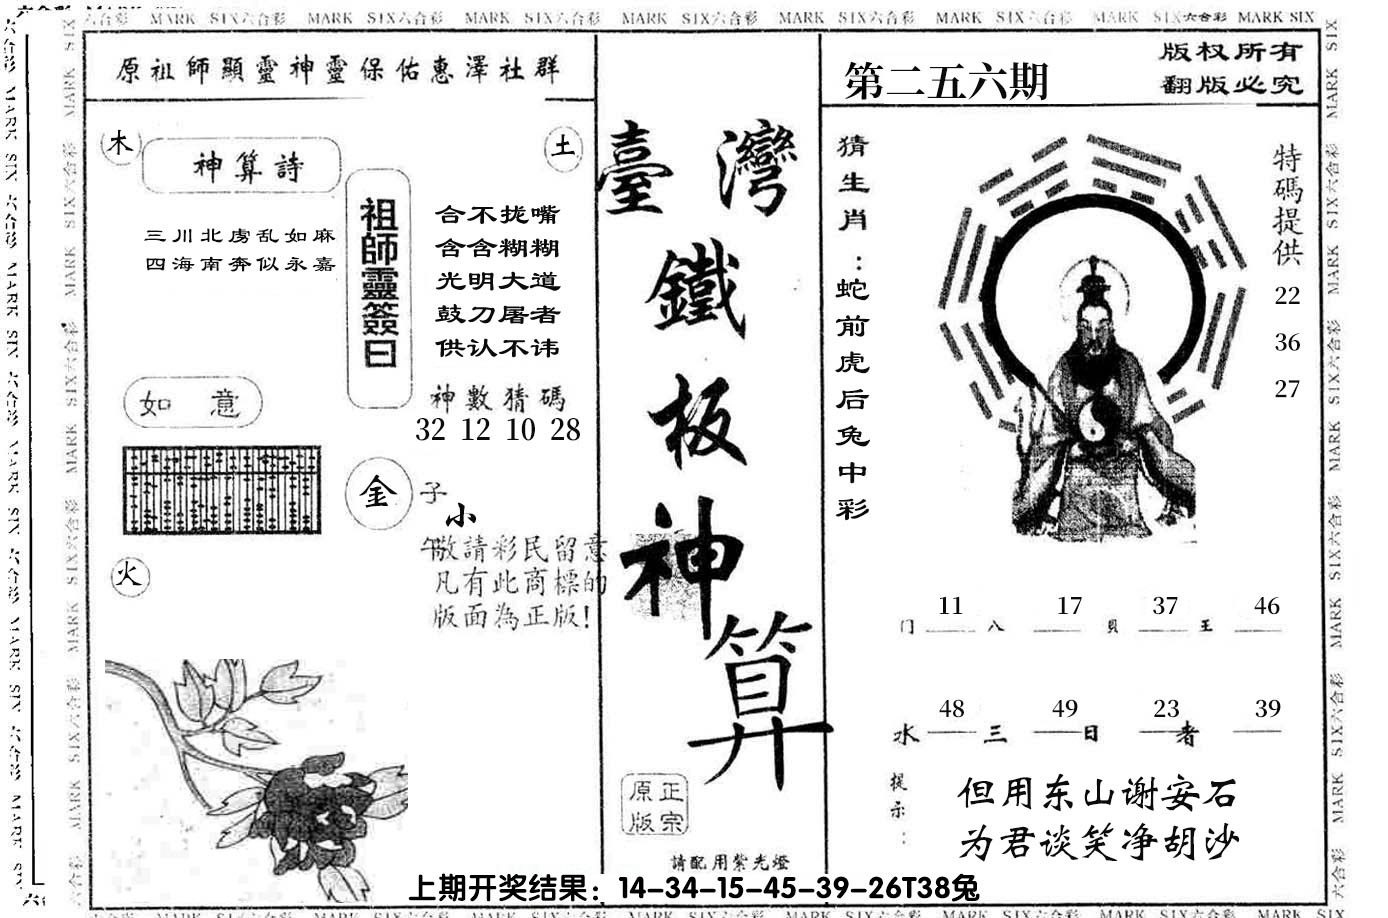 MARK SIX六合彩 MARK SIX六合彩 MARK SIX六合彩 MARK SIX六合彩 MARK SIX六合彩 MARK SIX六合彩 MARK SIX六合彩 MARK SIX
原祖師顯靈神靈保佑惠澤社群
木
神算詩
三川北虏乱如麻
四海南奔似永嘉
土
祖師靈簽曰
合不拢嘴
含含糊糊
光明大道
鼓刀屠者
供认不讳
神數猜碼
32 12 10 28
如意
金
子
小
午
敬請彩民留意
凡有此商標的
版面為正版!
火
臺灣
鐵
板
神
算
正宗
原版
請配用紫光燈
第二五六期
版权所有
翻版必究
猜生肖:蛇前虎后兔中彩
特碼提供
22
36
27
11 17 37 46
门 八 貝 王
48 49 23 39
水 三 日 者
提示:
但用东山谢安石
为君谈笑净胡沙
上期开奖结果：14-34-15-45-39-26T38兔